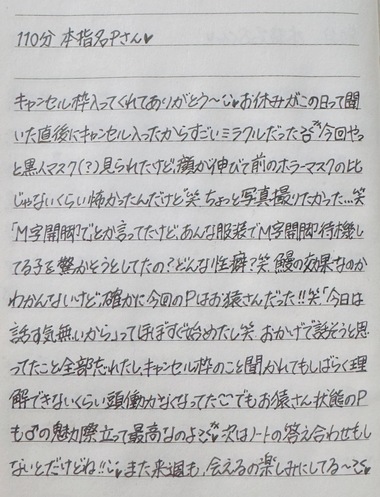 110分 本指名Pさん♥
キャンセル枠入ってくれてありがとう〜♥お休みがこの日って聞
いた直後にキャンセル入ったからすごいミラクルだった 今回やっ
と黒人マスク(?)見られたけど、顔が伸びて前のホラーマスクの比
じゃないくらい怖かったんだけど笑 ちょっと写真撮りたかった…笑
「M字開脚で」とか言ってたけど、あんな服装でM字開脚待機し
てる子を驚かそうとしてたの?どんな性癖?笑 鰻の効果なのか
わかんないけど、確かに今回のPはお猿さんだった!!笑「今日は
話す気無いから」ってほぼすぐ始めたし笑 おかげで話そうと思
ってたこと全部忘れたし、キャンセル枠のこと聞かれてもしばらく理
解できないくらい頭働かなくなってた でもお猿さん状態のP
も♂の魅力際立って最高なのよ 次はノートの答え合わせもし
ないとだけどね!! また来週も、会えるの楽しみにしてる〜